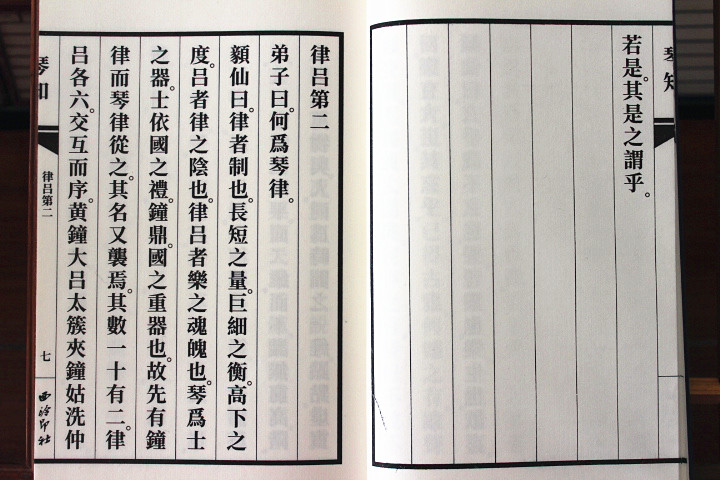 琴知
若是。其是之謂乎。
律呂第二
弟子曰。何爲琴律。
顡仙曰。律者制也。長短之量。巨細之衡。高下之
度。呂者律之陰也。律呂者樂之魂魄也。琴爲士
之器。士依國之禮。鐘鼎。國之重器也。故先有鐘
律而琴律從之。其名又襲焉。其數一十有二。律
呂各六。交互而序。黄鐘大呂太簇夾鐘姑洗仲
琴知
律呂第二
七
西泠印社